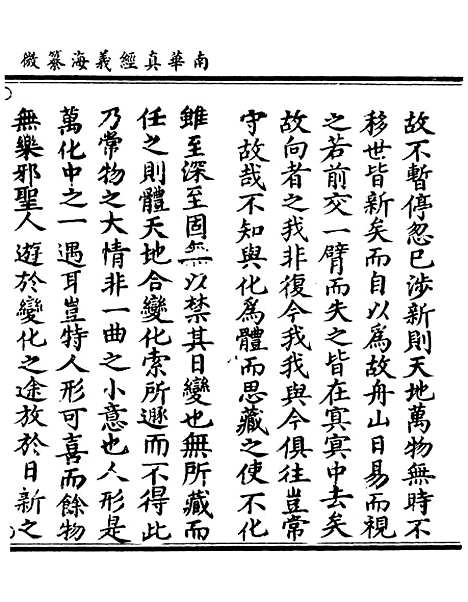 南華真經義海纂微
故不暫停忽已涉新則天地萬物無時不
移世皆新矣而自以爲故舟山日易而視
之若前交一臂而失之皆在冥冥中去矣
故向者之我非復今我我與今俱往豈常
守故哉不知與化爲體而思藏之使不化
雖至深至固無以禁其日變也無所藏而
任之則體天地合變化索所遯而不得此
乃常物之大情非一曲之小意也人形是
萬化中之一遇耳豈特人形可喜而餘物
無樂邪聖人遊於變化之途放於日新之